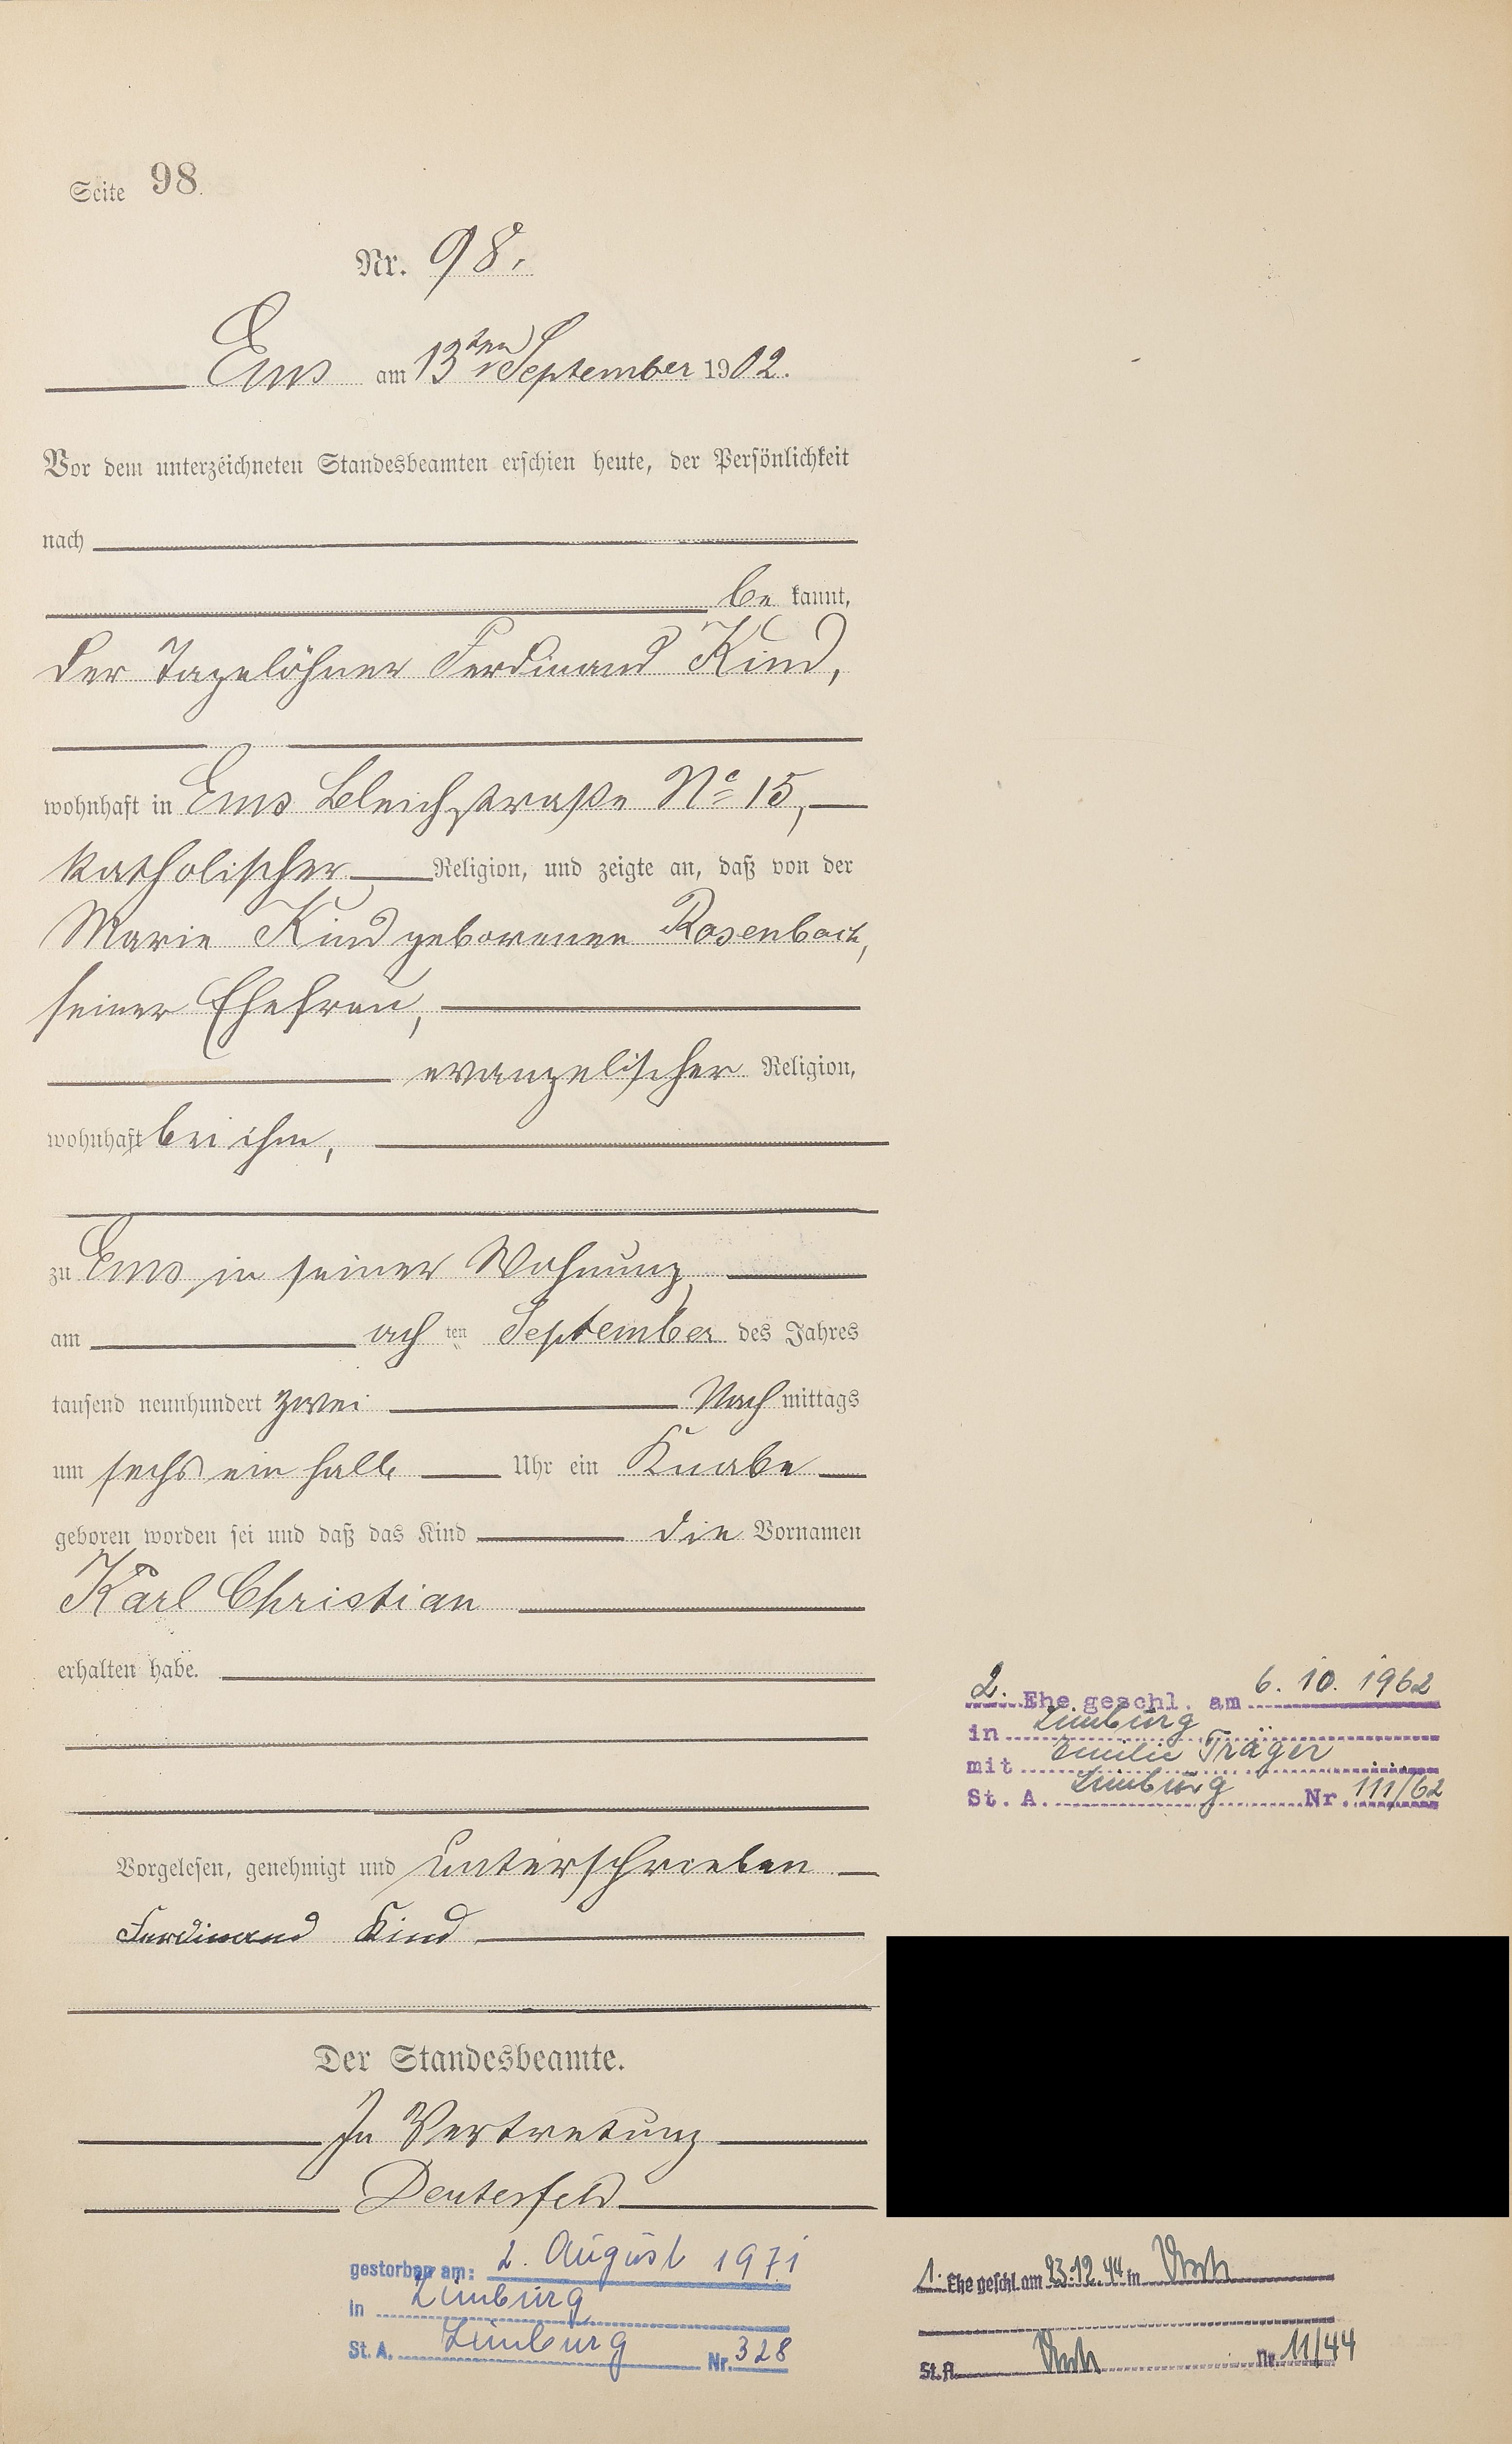 Seite 98.
Nr. 98.
Ems am 13ten September 1902.
Vor dem unterzeichneten Standesbeamten erschien heute, der Persönlichkeit
nach
be kannt,
der Tagelöhner Ferdinand Kind,
wohnhaft in Ems Bleichstraße No 15,
katholischer Religion, und zeigte an, daß von der
Marie Kind geborenen Rosenbach,
seiner Ehefrau,
evangelischer Religion,
wohnhaft bei ihm,
zu Ems in seiner Wohnung,
am acht ten September des Jahres
tausend neunhundert zwei Nach mittags
um sechs ein halb Uhr ein Knabe
geboren worden sei und daß das Kind die Vornamen
Karl Christian
erhalten habe.
Vorgelesen, genehmigt und unterschrieben
Ferdinand Kind
Der Standesbeamte.
In Vertretung
gestorben am: 2. August 1971
in Limburg
St. A. Limburg Nr. 328
2. Ehe geschl. am 6. 10. 1962
in Limburg
mit Emilie Träger
St. A. Limburg Nr. 111/62
1. Ehe geschl. am 23.12.44 in
St. A. Nr. 11/44